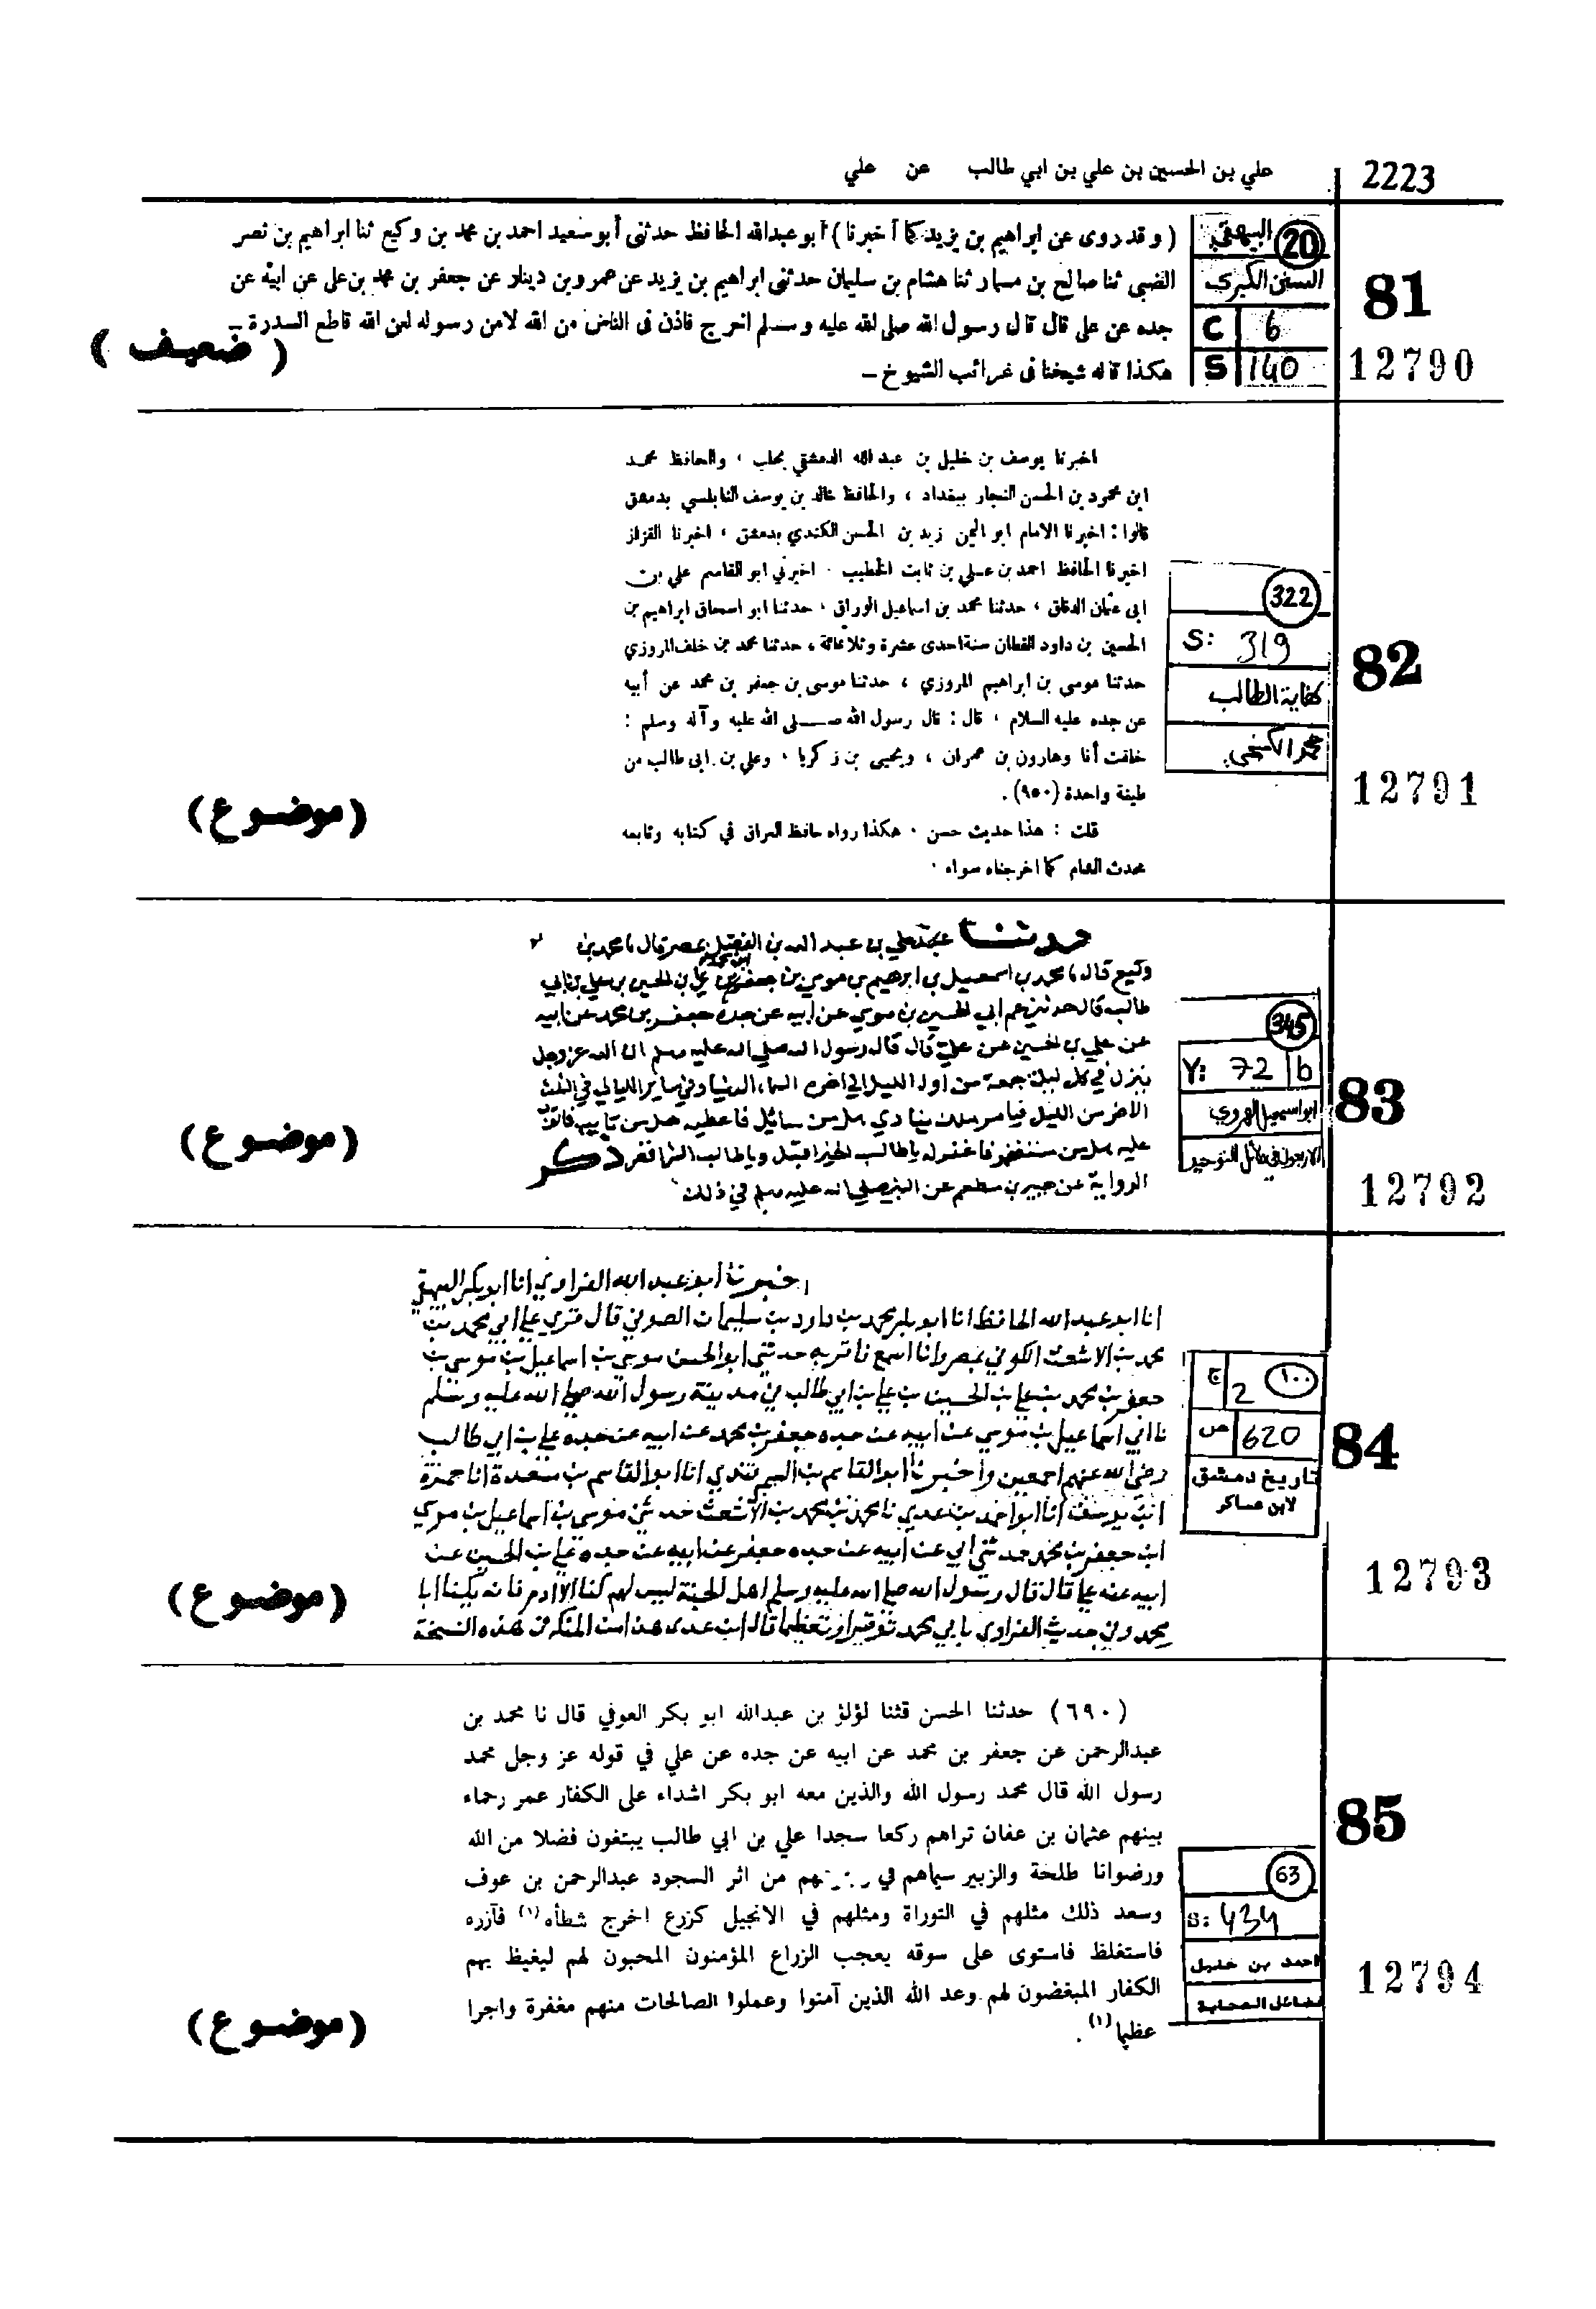 2223
علي بن الحسين بن علي بن ابي طالب عن علي
81
12790
20
البيهقي
السنن الكبرى
C 6
S 140
( وقد روى عن ابراهيم بن يزيد كما أخبرنا ) أبو عبدالله الحافظ حدثنى أبو سعيد احمد بن محمد بن وكيع ثنا ابراهيم بن نصر
الضبى ثنا صالح بن مسمار ثنا هشام بن سليمان حدثنى ابراهيم بن يزيد عن عمرو بن دينار عن جعفر بن محمد بن على عن ابيه عن
جده عن على قال قال رسول الله صلى الله عليه وسلم اخرج فاذن فى الناس من الله لا من رسوله لعن الله قاطع السدرة ــ
هكذا قاله شيخنا فى غرائب الشيوخ ــ
( ضعيف )
82
12791
322
S: 319
كفاية الطالب
محمد الكنجي
اخبرنا يوسف بن خليل بن عبد الله الدمشقي بحلب ، والحافظ محمد
ابن محمود بن الحسن النجار ببغداد ، والحافظ خالد بن يوسف النابلسي بدمشق
قالوا : اخبرنا الامام ابو اليمن زيد بن الحسن الكندي بدمشق ، اخبرنا القزاز
اخبرنا الحافظ احمد بن علي بن ثابت الخطيب . اخبرني ابو القاسم علي بن
ابى عثمان الدقاق ، حدثنا محمد بن اسماعيل الوراق ، حدثنا ابو اسحاق ابراهيم بن
الحسين بن داود القطان سنة احدى عشرة وثلاثمائة ، حدثنا محمد بن خلف المروزي
حدثنا موسى بن ابراهيم المروزي ، حدثنا موسى بن جعفر بن محمد عن أبيه
عن جده عليه السلام ، قال : قال رسول الله صلى الله عليه وآله وسلم :
خلقت أنا وهارون بن عمران ، ويحيى بن زكريا ، وعلي بن ابى طالب من
طينة واحدة (٩٥٠) .
قلت : هذا حديث حسن . هكذا رواه حافظ العراق في كتابه وتابعه
محدث الشام كما اخرجناه سواء .
(موضوع)
83
12792
345
Y: 72 b
ابو اسمعيل الهروي
الاربعون في دلائل التوحيد
حدثنا علي بن عبد الله بن الفضل بمصر قال نا محمد بن
وكيع قال نا محمد بن اسمعيل بن ابرهيم بن موسى بن جعفر بن محمد بن علي بن الحسين بن علي بن ابي
طالب قال حدثني عم ابي الحسين بن موسي عن ابيه عن جده جعفر بن محمد عن ابيه
عن علي بن الحسين عن علي قال قال رسول الله صلي الله عليه وسلم ان الله عز وجل
ينزل في كل ليلة جمعة من اول الليل الي اخره السماء الدنيا وفي ساير الليالي في الثلث
الاخر من الليل فيامر ملك ينادي هل من سائل فاعطيه هل من تايب فاتوب
عليه هل من مستغفر فاغفر له يا طالب الخير اقبل ويا طالب الشر اقصر ذكر
الرواية عن جبير بن مطعم عن النبي صلي الله عليه وسلم في ذلك
(موضوع)
84
12793
١٠٠
ج 2
ص 620
تاريخ دمشق
لابن عساكر
اخبرنا ابو عبد الله الفراوي انا ابو بكر البيهقي
انا ابو عبد الله الحافظ انا ابو بكر محمد بن داود بن سليمان الصوفي قال قري علي ابي محمد بن
محمد بن الاشعث الكوفي بمصر وانا اسمع نا قربه حدثني ابو الحسن موسي بن اسماعيل بن موسي بن
جعفر بن محمد بن علي بن الحسين بن علي بن ابي طالب في مدينة رسول الله صلى الله عليه وسلم
نا ابي اسماعيل بن موسي عن ابيه عن جده جعفر بن محمد عن ابيه عن جده علي بن ابي طالب
رضي الله عنهم اجمعين واخبرنا ابو القاسم بن السمرقندي انا ابو القاسم بن مسعدة انا حمزة
ابن يوسف انا ابو احمد بن عدي نا محمد بن محمد بن الاشعث حدثني موسى بن اسماعيل بن موسي
ابن جعفر بن محمد حدثني ابي عن ابيه عن جده جعفر عن ابيه عن جده علي بن الحسين عن
ابيه عن علي قال قال رسول الله صلى الله عليه وسلم اهل الجنة ليس لهم كنا الا ادم فانه يكنا ابا
محمد وفي حديث الفراوي بابي محمد توقيرا وتعظيما قال ابن عدي هذا من المنكر في هذه النسخة
(موضوع)
85
12794
63
S: 434
احمد بن حنبل
فضائل الصحابة
(٦٩٠) حدثنا الحسن قثنا لؤلؤ بن عبدالله ابو بكر العوفي قال نا محمد بن
عبدالرحمن عن جعفر بن محمد عن ابيه عن جده عن علي في قوله عز وجل محمد
رسول الله قال محمد رسول الله والذين معه ابو بكر اشداء على الكفار عمر رحماء
بينهم عثمان بن عفان تراهم ركعا سجدا علي بن ابي طالب يبتغون فضلا من الله
ورضوانا طلحة والزبير سيماهم في من اثر السجود عبدالرحمن بن عوف
وسعد ذلك مثلهم في التوراة ومثلهم في الانجيل كزرع اخرج شطأه (١) فآزره
فاستغلظ فاستوى على سوقه يعجب الزراع المؤمنون المحبون لهم ليغيظ بهم
الكفار المبغضون لهم وعد الله الذين آمنوا وعملوا الصالحات منهم مغفرة واجرا
عظيما (١) .
(موضوع)